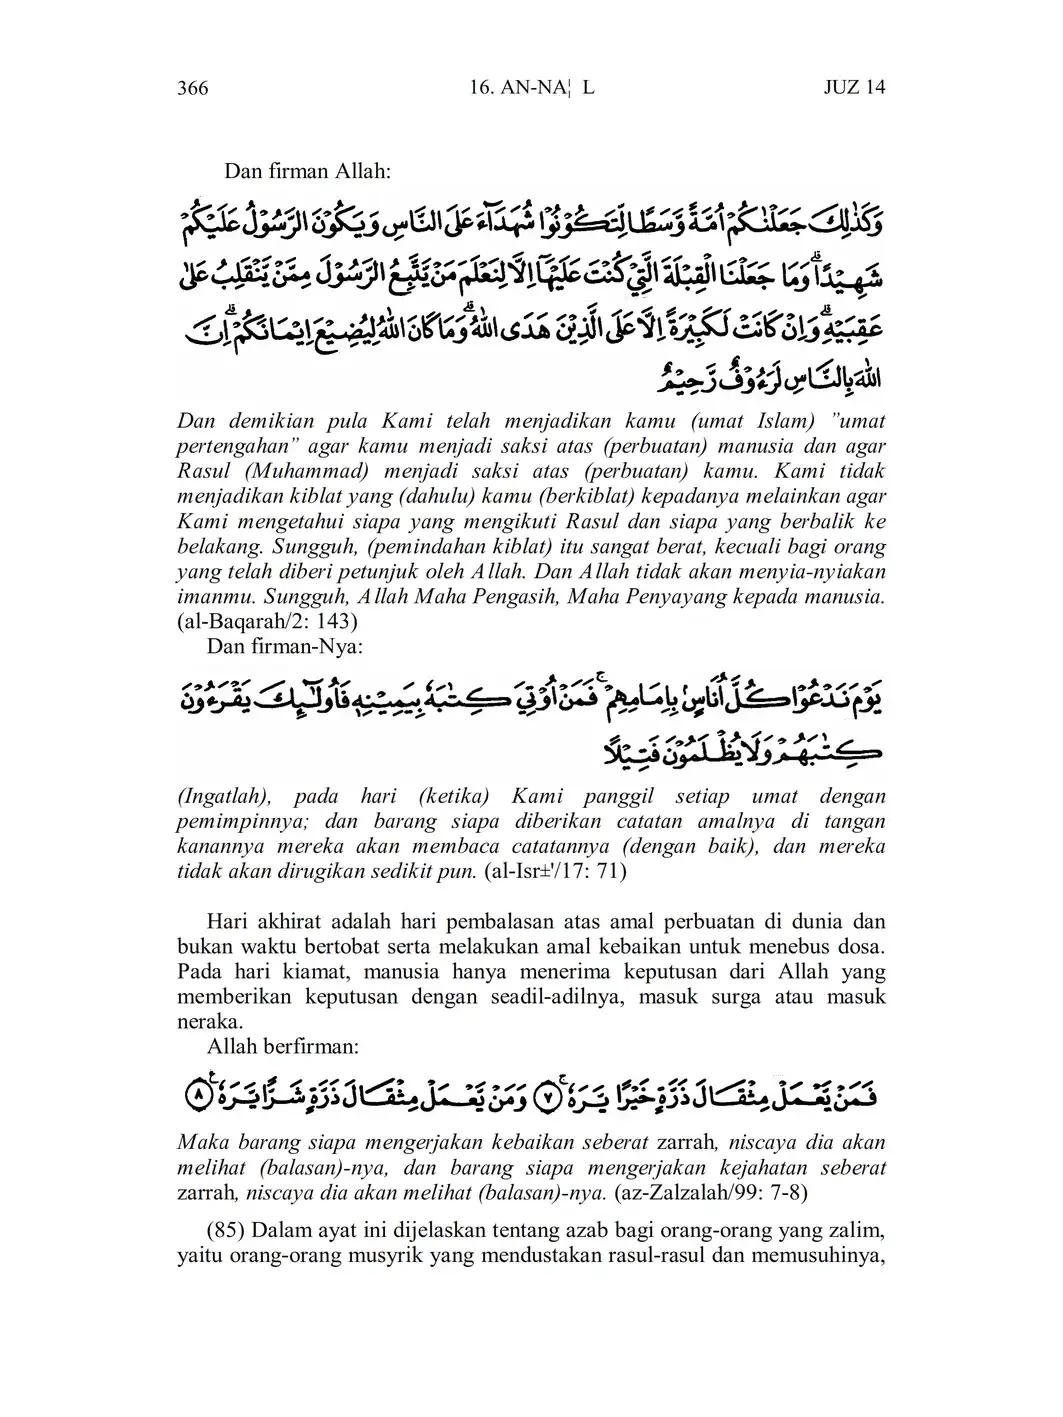 366 16. AN-NA¦ L JUZ 14
Dan firman Allah:
وَكَذٰلِكَ جَعَلْنٰكُمْ اُمَّةً وَّسَطًا لِّتَكُوْنُوْا شُهَدَاۤءَ عَلَى النَّاسِ وَيَكُوْنَ الرَّسُوْلُ عَلَيْكُمْ
شَهِيْدًاۗ وَمَا جَعَلْنَا الْقِبْلَةَ الَّتِيْ كُنْتَ عَلَيْهَآ اِلَّا لِنَعْلَمَ مَنْ يَّتَّبِعُ الرَّسُوْلَ مِمَّنْ يَّنْقَلِبُ عَلٰى
عَقِبَيْهِۗ وَاِنْ كَانَتْ لَكَبِيْرَةً اِلَّا عَلَى الَّذِيْنَ هَدَى اللّٰهُۗ وَمَا كَانَ اللّٰهُ لِيُضِيْعَ اِيْمَانَكُمْۗ اِنَّ
اللّٰهَ بِالنَّاسِ لَرَءُوْفٌ رَّحِيْمٌ
Dan demikian pula Kami telah menjadikan kamu (umat Islam) ”umat
pertengahan” agar kamu menjadi saksi atas (perbuatan) manusia dan agar
Rasul (Muhammad) menjadi saksi atas (perbuatan) kamu. Kami tidak
menjadikan kiblat yang (dahulu) kamu (berkiblat) kepadanya melainkan agar
Kami mengetahui siapa yang mengikuti Rasul dan siapa yang berbalik ke
belakang. Sungguh, (pemindahan kiblat) itu sangat berat, kecuali bagi orang
yang telah diberi petunjuk oleh Allah. Dan Allah tidak akan menyia-nyiakan
imanmu. Sungguh, Allah Maha Pengasih, Maha Penyayang kepada manusia.
(al-Baqarah/2: 143)
Dan firman-Nya:
يَوْمَ نَدْعُوْا كُلَّ اُنَاسٍۢ بِاِمَامِهِمْۚ فَمَنْ اُوْتِيَ كِتٰبَهٗ بِيَمِيْنِهٖ فَاُولٰۤىِٕكَ يَقْرَءُوْنَ
كِتٰبَهُمْ وَلَا يُظْلَمُوْنَ فَتِيْلًا
(Ingatlah), pada hari (ketika) Kami panggil setiap umat dengan
pemimpinnya; dan barang siapa diberikan catatan amalnya di tangan
kanannya mereka akan membaca catatannya (dengan baik), dan mereka
tidak akan dirugikan sedikit pun. (al-Isr±'/17: 71)
Hari akhirat adalah hari pembalasan atas amal perbuatan di dunia dan
bukan waktu bertobat serta melakukan amal kebaikan untuk menebus dosa.
Pada hari kiamat, manusia hanya menerima keputusan dari Allah yang
memberikan keputusan dengan seadil-adilnya, masuk surga atau masuk
neraka.
Allah berfirman:
فَمَنْ يَّعْمَلْ مِثْقَالَ ذَرَّةٍ خَيْرًا يَّرَهٗۚ ٧ وَمَنْ يَّعْمَلْ مِثْقَالَ ذَرَّةٍ شَرًّا يَّرَهٗ ࣖ ٨
Maka barang siapa mengerjakan kebaikan seberat zarrah, niscaya dia akan
melihat (balasan)-nya, dan barang siapa mengerjakan kejahatan seberat
zarrah, niscaya dia akan melihat (balasan)-nya. (az-Zalzalah/99: 7-8)
(85) Dalam ayat ini dijelaskan tentang azab bagi orang-orang yang zalim,
yaitu orang-orang musyrik yang mendustakan rasul-rasul dan memusuhinya,